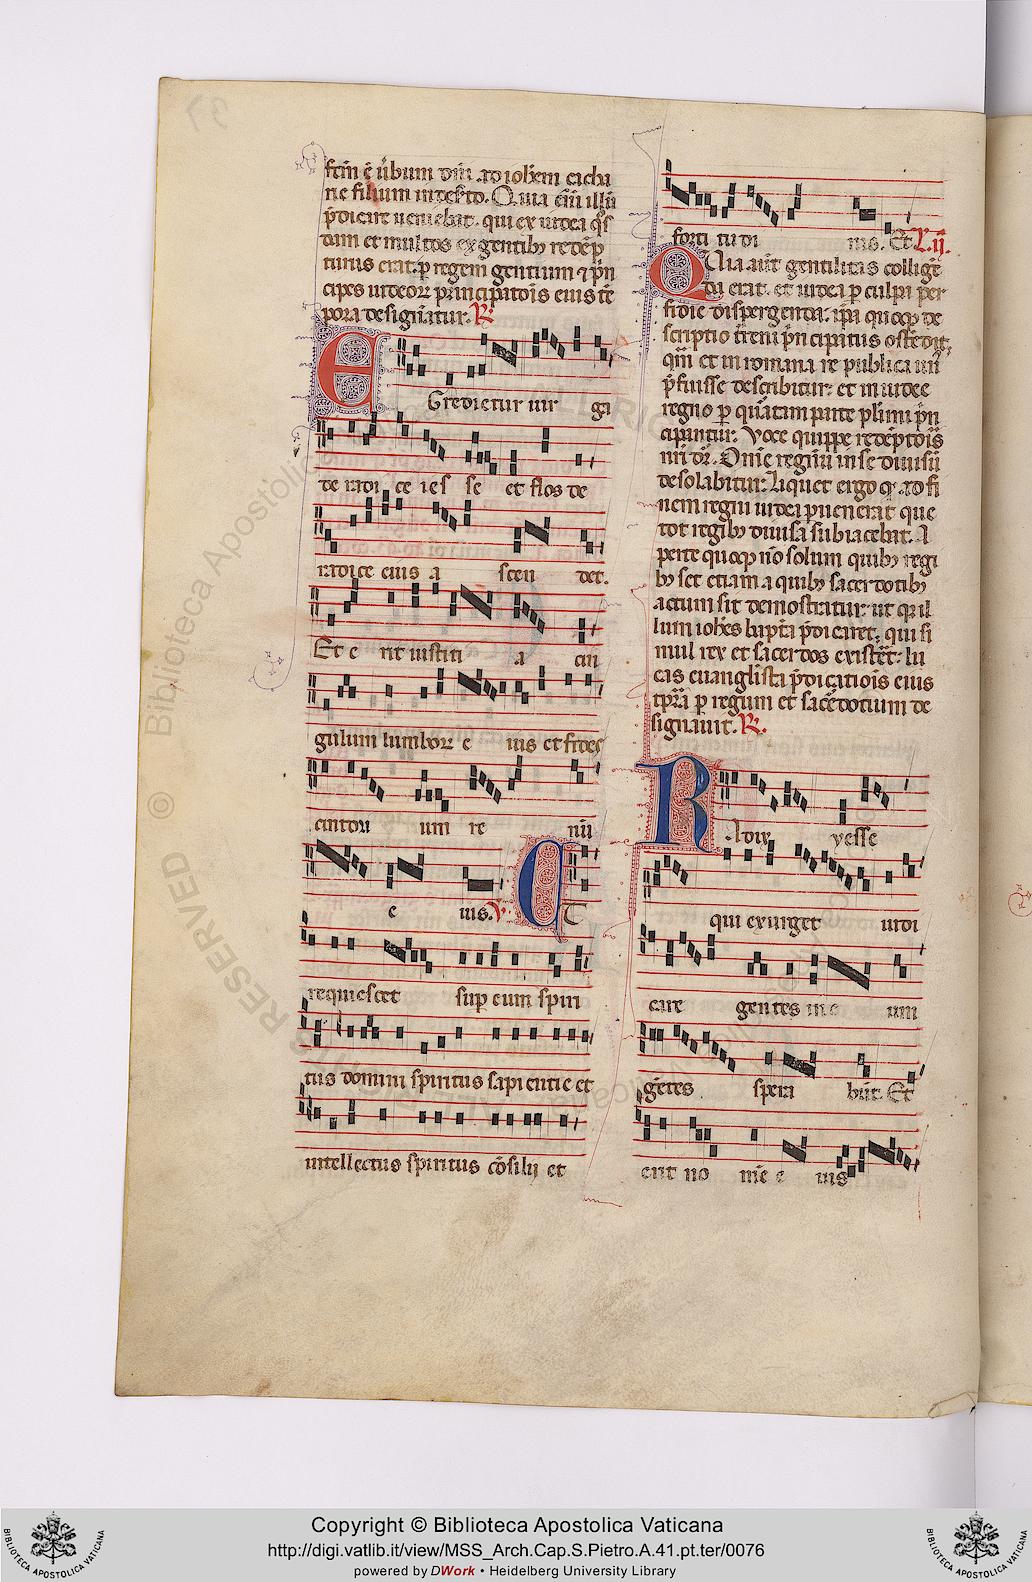 ftm̄ ē úbum dn̄i. ad ioh̄em zacha
rie filium in deſ̄to. Quia em̄ illū
p̄dicare ueniebat. qui ex iudea q̊ſ
dam et multos ex gentibꝰ redēp
turus erat: ꝑ regem gentium ⁊ p̄n
cipes iudeoꝝ principatōis eius tē
pora deſignatur. R̸
Egredietur uir gi
de radi ce ieſ ſe et flos de
radice eius a ſcen det.
Et e rit iuſtiti a cin
gulum lumboꝝ e ius et fides
cinctori um re nū
e ius. V̸. Et
requieſcet ſuꝑ eum ſpiri
tus domini ſpiritus ſapientie et
intellectus ſpiritus cōſilij et
forti tudi nis. Et L. ij.
Quia aūt gentilitas colligē
da erat. et iudea ꝑ culpā per
fidie diſpergenda: ipa quoqꝫ de
ſcriptio t̄reni p̄ncipatus oſtēdit;
qm̄ et in romana re publica un̄
p̄fuiſſe deſcribitur: et in iudee
regno ꝑ quartam parte plīmi p̄n
cipantur. Voce quippe redēptoris
nr̄i dr̄. Omē regnū in ſe diuiſū
deſolabitur. Liquet ergo ꝙ ad fi
nem regni iudea puenerat que
tot regibꝰ diuiſa ſubiacebat. A
perte quoqꝫ nō ſolum quibꝰ regi
bꝰ ſet etiam a quibꝰ ſacerdotibꝰ
actum ſit demoſtratur: ut qꝛ il
lum ioh̄es bapt̄a p̄dicaret, qui ſi
mul rex et ſacerdos exiſtēt: lu
cas euangliſta p̄dicatiōis eius
tp̄ra ꝑ regnum et ſacēdotium de
ſignauit. R̸.
Radix yeſſe
qui exurget iudi
care gentes in e um
gētes ſpera būt. Et
erit no mē e ius
Copyright © Biblioteca Apostolica Vaticana
http://digi.vatlib.it/view/MSS_Arch.Cap.S.Pietro.A.41.pt.ter/0076
powered by DWork • Heidelberg University Library